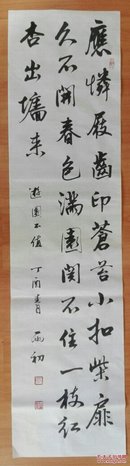 應憐屐齒印蒼苔小扣柴扉
久不開春色滿園関不住一枝紅
杏出墻来
遊園不值 丁酉春月 雨初